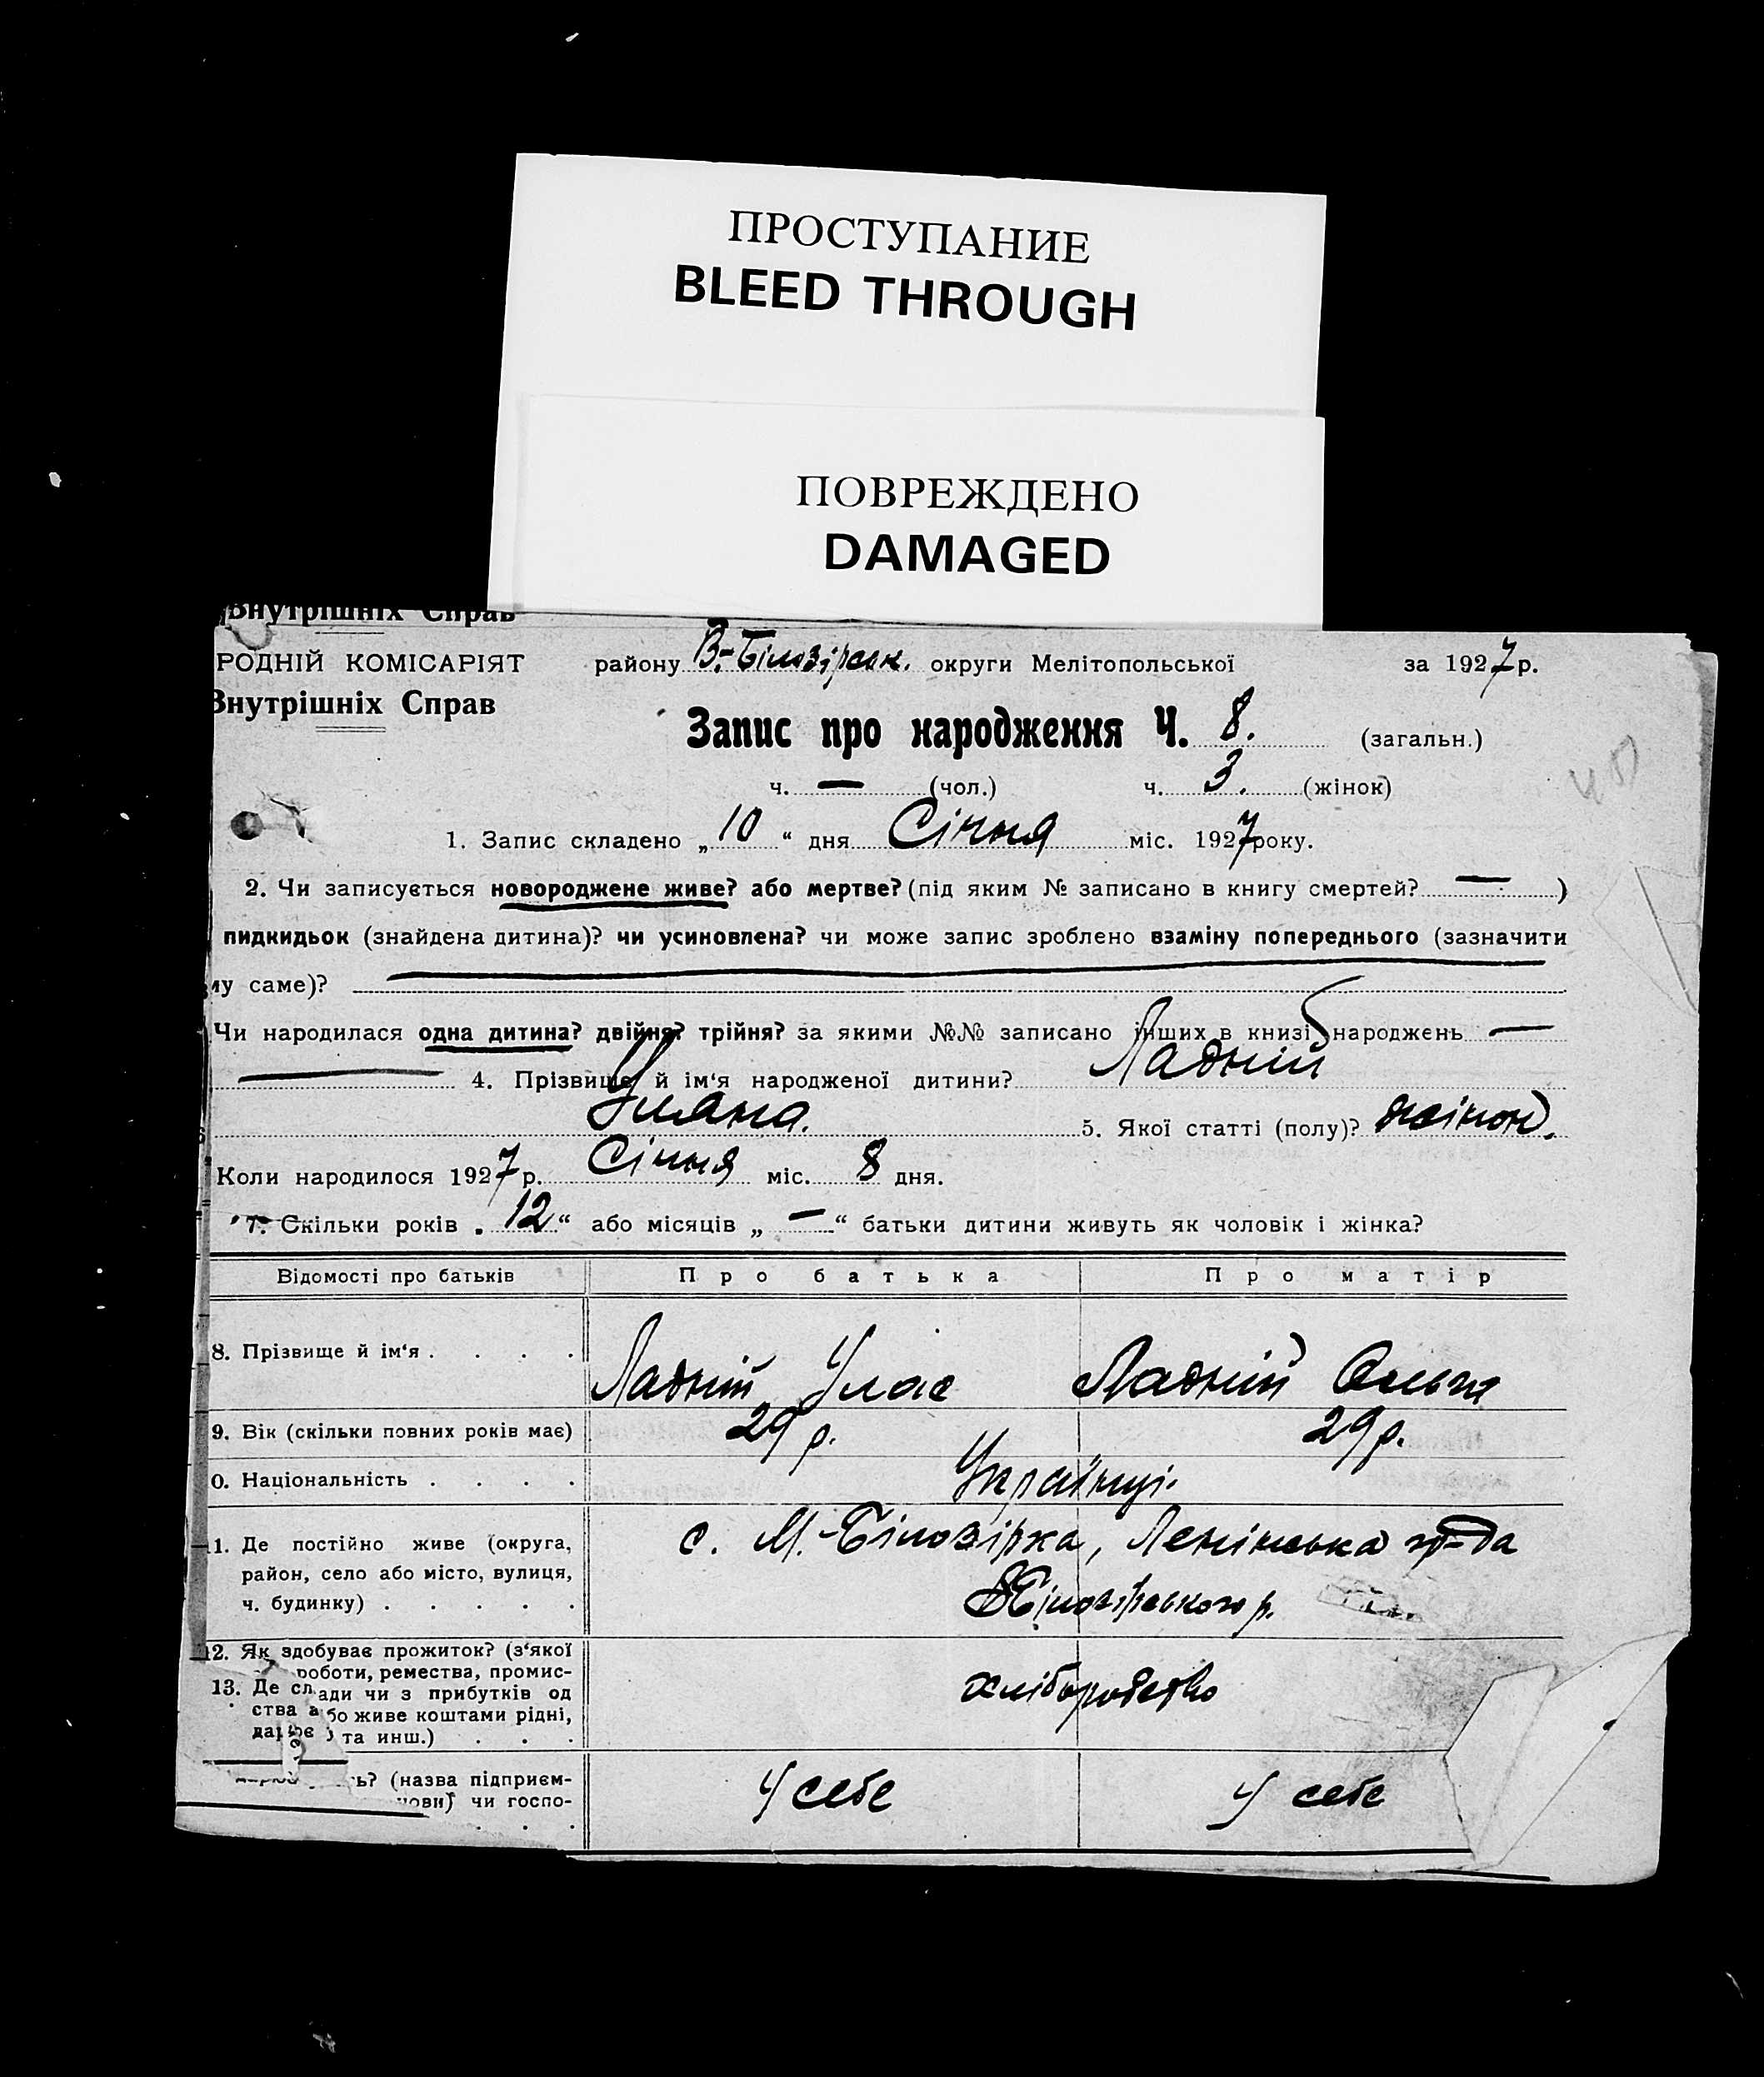 ПРОСТУПАНИЕ
BLEED THROUGH
ПОВРЕЖДЕНО
DAMAGED
Внутрішніх Справ
РОДНІЙ КОМІСАРІЯТ району В.-Білозірськ. округи Мелітопольської за 1927 р.
Внутрішніх Справ
Запис про народження Ч. 8. (загальн.)
ч. — (чол.) ч. 3. (жінок)
1. Запис складено „10“ дня Січня міс. 1927 року.
2. Чи записується новороджене живе? або мертве? (під яким № записано в книгу смертей? — )
пидкидьок (знайдена дитина)? чи усиновлена? чи може запис зроблено взаміну попереднього (зазначити
му саме)?
Чи народилася одна дитина? двійня? трійня? за якими №№ записано інших в книзі народжень —
— 4. Прізвище й ім‘я народженої дитини? Ладній
Уляна. 5. Якої статті (полу)? жіноч.
Коли народилося 1927 р. Січня міс. 8 дня.
7. Скільки років „12“ або місяців „—“ батьки дитини живуть як чоловік і жінка?
Відомості про батьків Про батька Про матір
8. Прізвище й ім‘я . . . . Ладній Улас Ладній Ольга
9. Вік (скільки повних років має) 29 р. 29 р.
0. Національність . . . . Українці.
1. Де постійно живе (округа, с. М.-Білозірка, Ленінська
район, село або місто, вулиця,
ч. будинку) . . . . . Білозірського р.
12. Як здобуває прожиток? (з‘якої
роботи, ремества, промис-
13. Де сл ади чи з прибутків од хліборобство
ства а бо живе коштами рідні,
та инш.) . . .
ь? (назва підприєм- У себе У себе
нови) чи госпо-
. . .